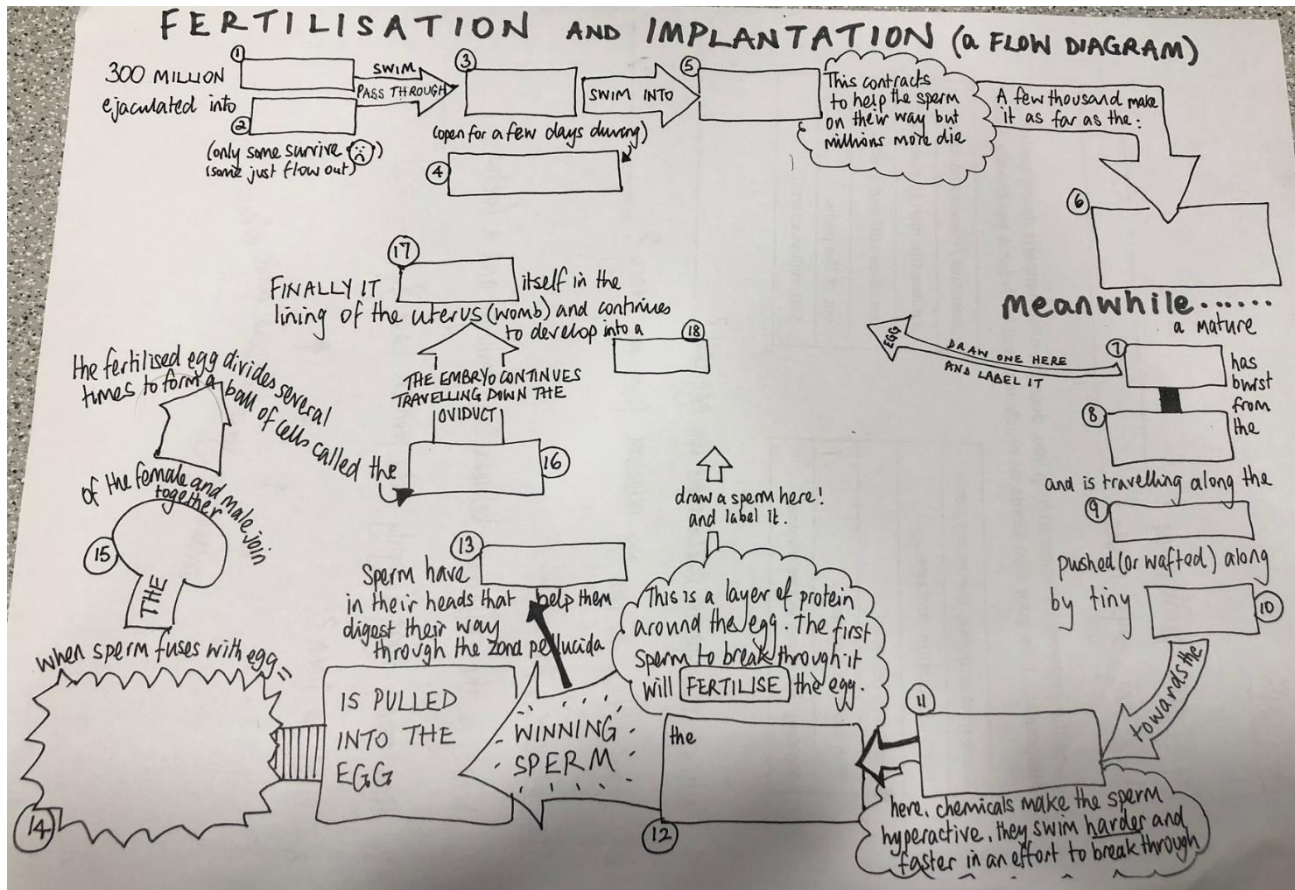 FERTILISATION AND IMPLANTATION (a FLOW DIAGRAM)
300 MILLION
ejaculated into
①
②
(only some survive)
(some just flow out)
SWIM
PASS THROUGH
③
(open for a few days during)
④
SWIM INTO
⑤
This contracts
to help the sperm
on their way but
millions more die
A few thousand make
it as far as the:
⑥
meanwhile......
a mature
⑦
has
burst
from
the
EGG
DRAW ONE HERE
AND LABEL IT
⑧
and is travelling along the
⑨
pushed (or wafted) along
by tiny
⑩
towards the
⑪
here, chemicals make the sperm
hyperactive, they swim harder and
faster in an effort to break through
the
⑫
This is a layer of protein
around the egg. The first
sperm to break through it
will FERTILISE the egg.
draw a sperm here!
and label it.
WINNING
SPERM
⑬
Sperm have
in their heads that help them
digest their way
through the zona pellucida
IS PULLED
INTO THE
EGG
⑭
when sperm fuses with egg =
THE
⑮
of the female and male join
together
the fertilised egg divides several
times to form a ball of cells called the
⑯
THE EMBRYO CONTINUES
TRAVELLING DOWN THE
OVIDUCT
⑰
FINALLY IT itself in the
lining of the uterus (womb) and continues
to develop into a
⑱